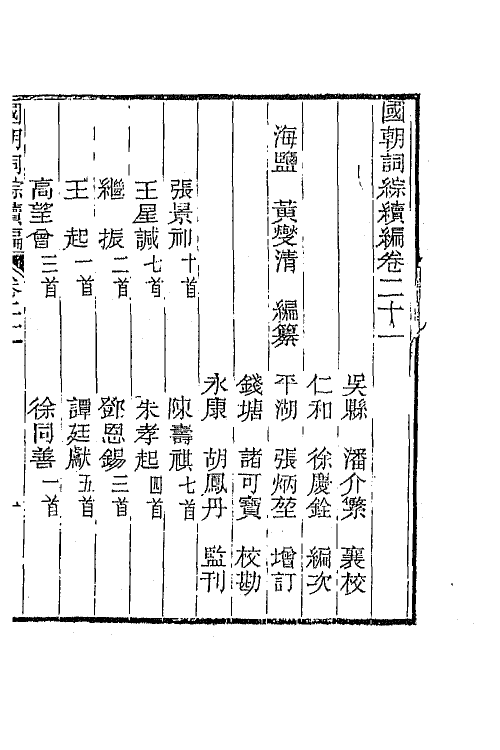 國朝詞綜續編卷二十一
吳縣 潘介繁 襄校
仁和 徐慶銓 編次
海鹽 黃燮清 編纂 平湖 張炳堃 增訂
錢塘 諸可寶 校勘
永康 胡鳳丹 監刊
張景祁十首 陳壽祺七首
王星諴七首 朱孝起四首
繼振二首 鄧恩錫三首
王起一首 譚廷獻五首
高望曾三首 徐同善一首
國朝詞綜續編 卷二十一 一